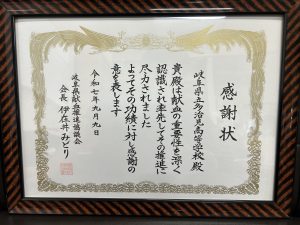 感謝状
岐阜県立多治見高等学校殿
貴殿は献血の重要性を深く
認識され率先してその推進に
尽力されました
よってその功績に対し感謝の
意を表します
令和七年九月九日
岐阜県献血推進協議会
会長 伊在井みどり